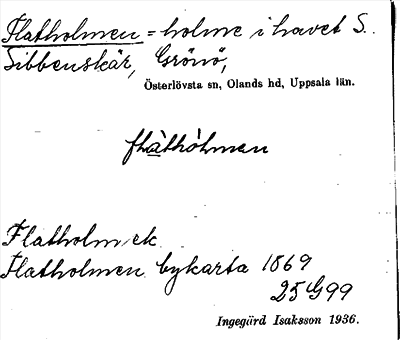 Flatholmen = holme i havet S.
Sibbenskär, Grönö,
Österlövsta sn, Olands hd, Uppsala län.
flàthòlmen
Flatholm ek
Flatholmen bykarta 1869
25 G 99
Ingegärd Isaksson 1936.